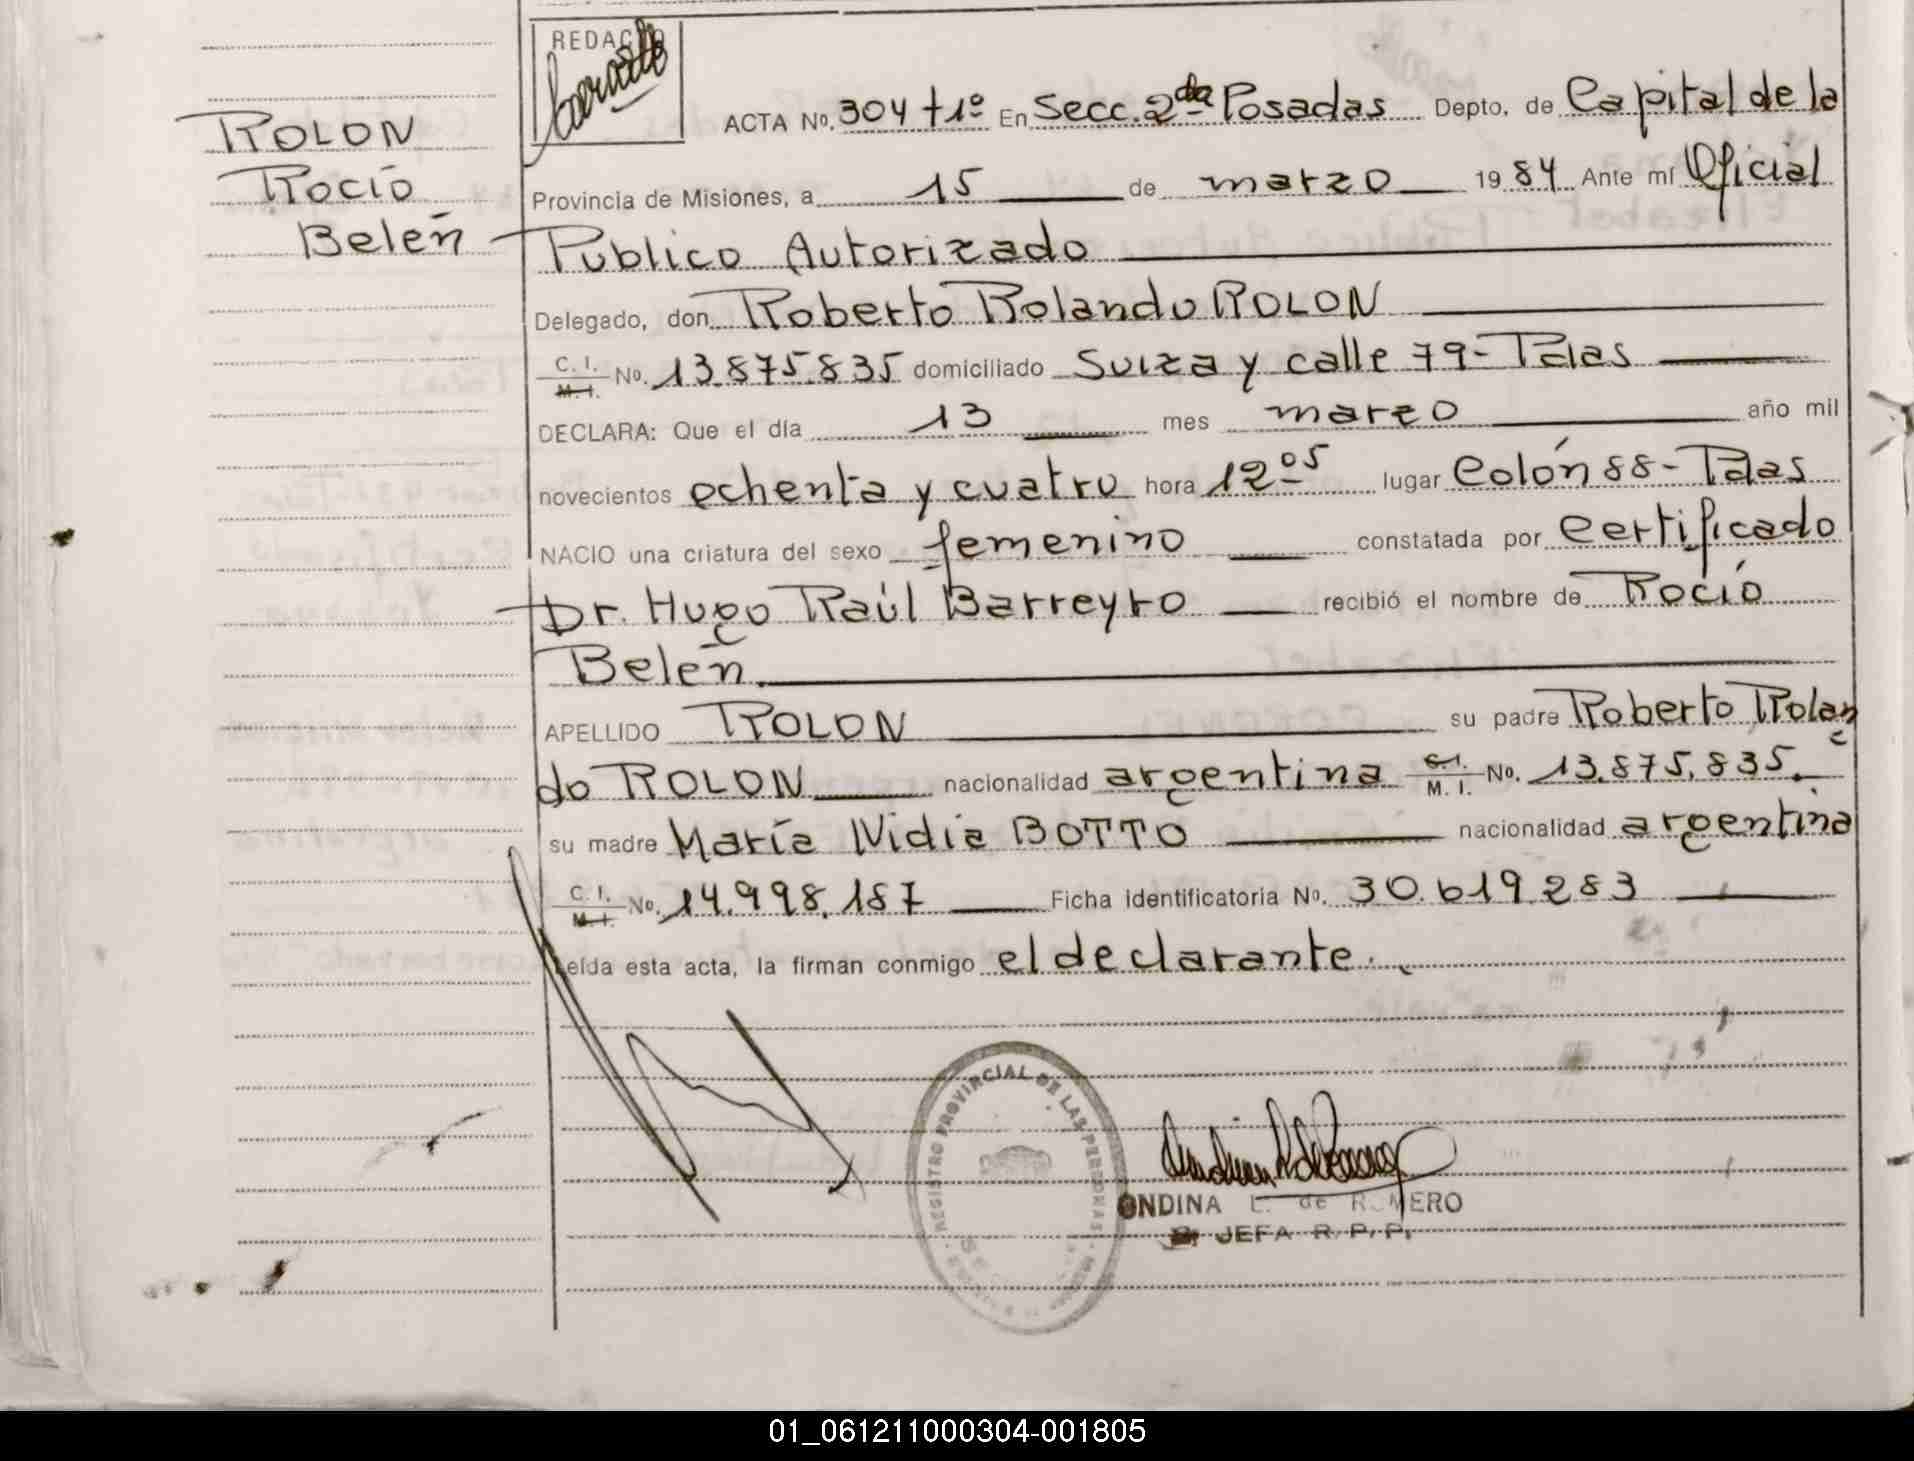 REDACTO
ACTA No. 304 t 1º En Secc. 2da Posadas Depto. de Capital de la
ROLON
Rocío
Belén
Provincia de Misiones, a 15 de marzo 1984 Ante mí Oficial
Público Autorizado
Delegado, don Roberto Rolando ROLON
C. I. M. I. No. 13.875.835 domiciliado Suiza y calle 79-Pdas
DECLARA: Que el día 13 mes marzo año mil
novecientos ochenta y cuatro hora 12⁰⁵ lugar Colón 88-Pdas
NACIO una criatura del sexo femenino constatada por Certificado
Dr. Hugo Raúl Barreyro recibió el nombre de Rocío
Belén.
APELLIDO ROLON su padre Roberto Rolan
do ROLON nacionalidad argentina C. I. M. I. No. 13.875.835.
su madre María Nidia BOTTO nacionalidad argentina
C. I. M. I. No. 14.998.187 Ficha identificatoria No. 30.619.283
Leída esta acta, la firman conmigo el declarante.
REGISTRO PROVINCIAL DE LAS PERSONAS
ONDINA L. de ROMERO
JEFA R. P. P.
01_061211000304-001805